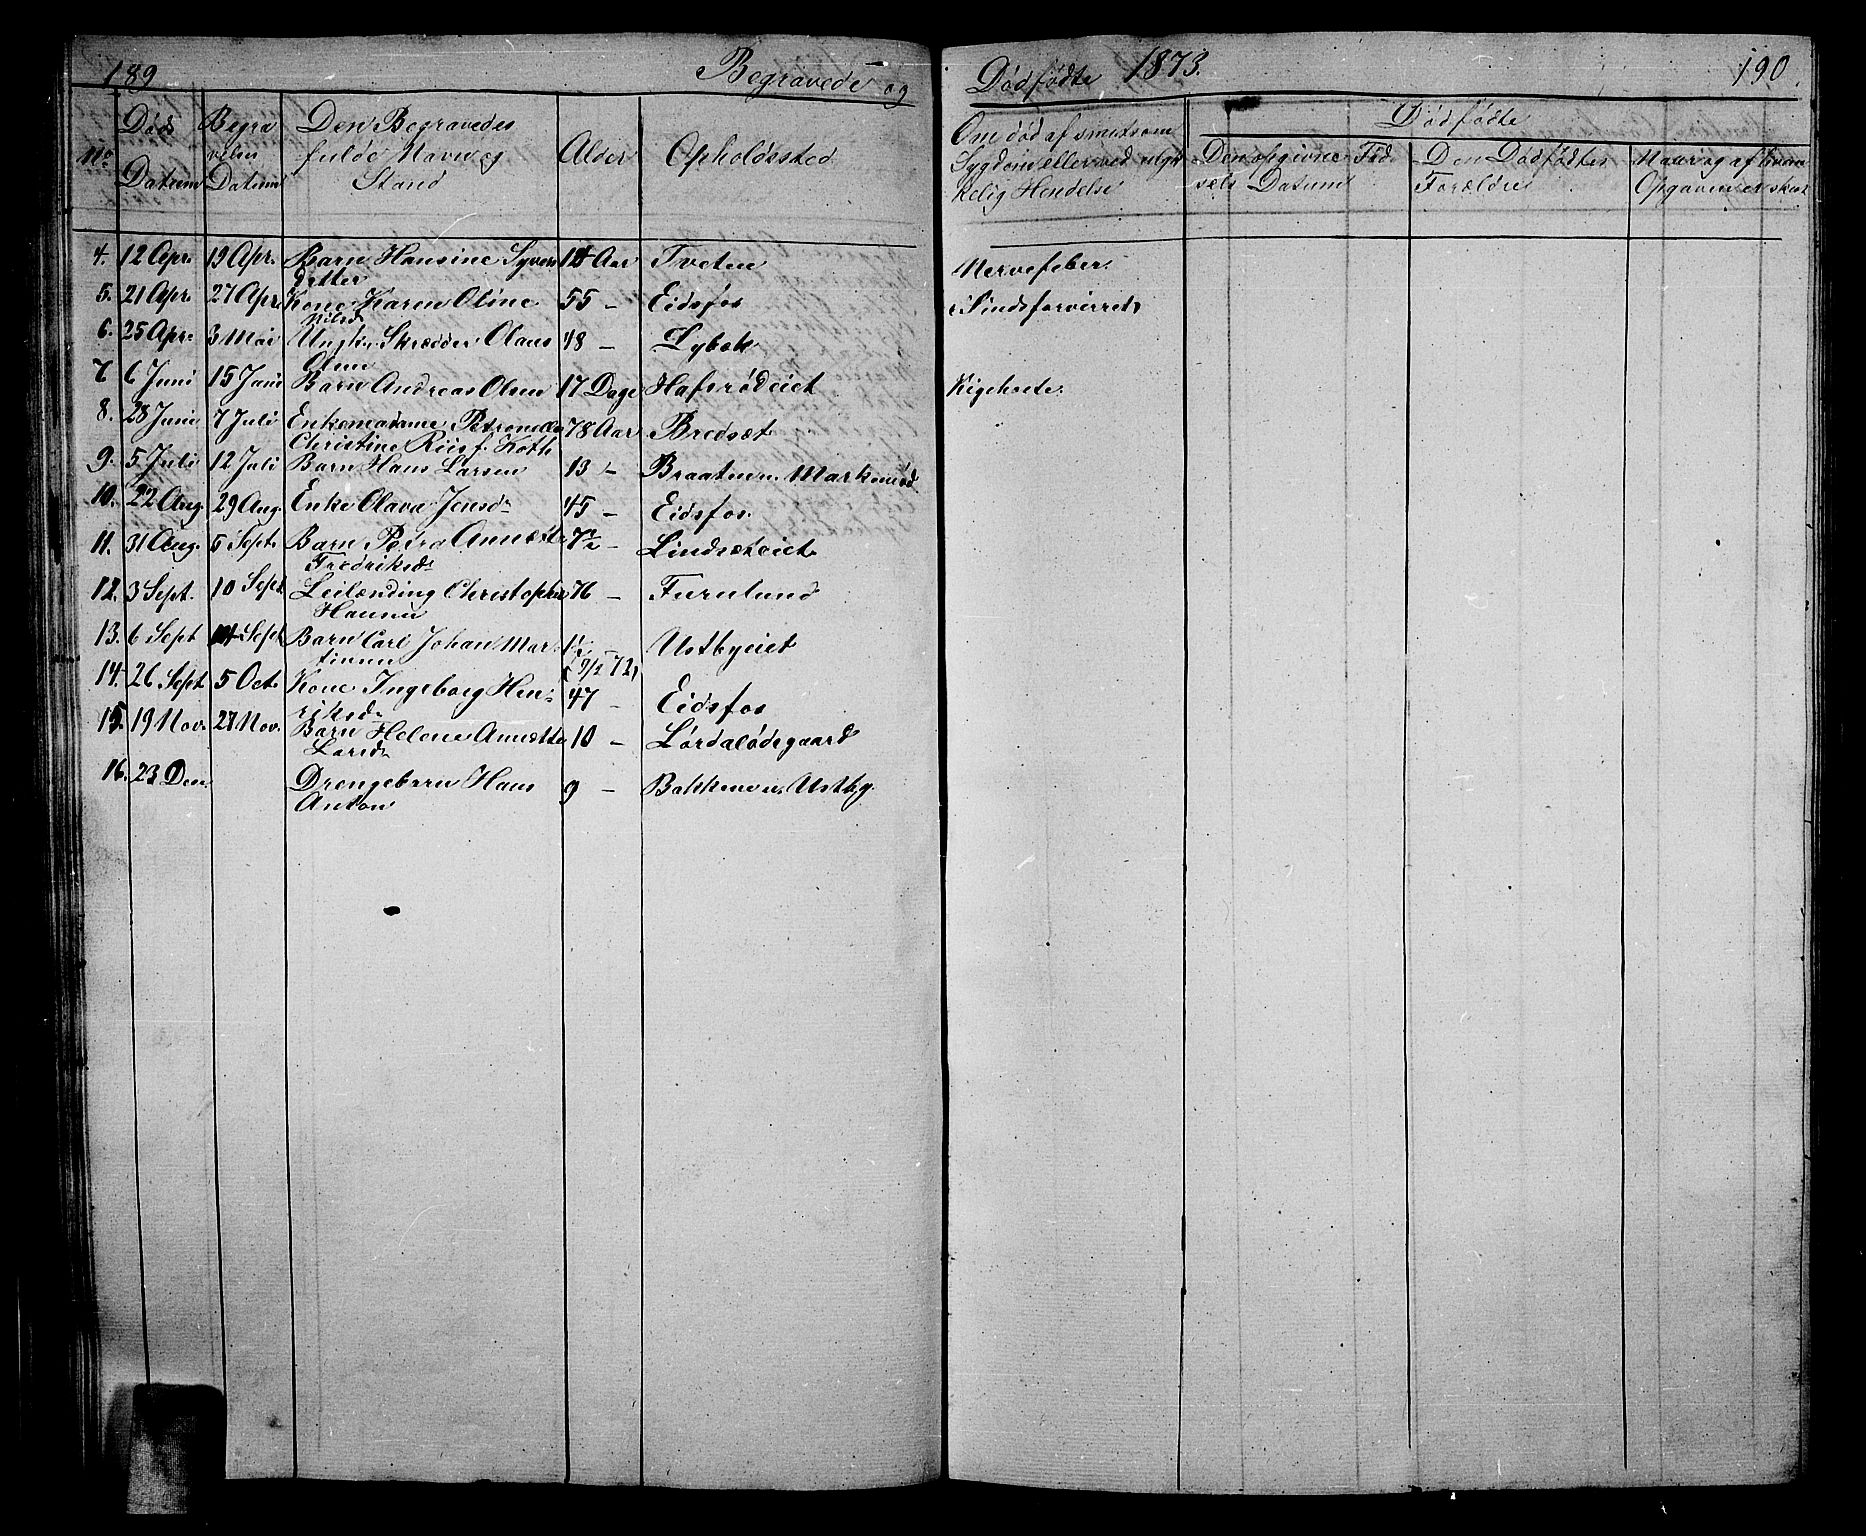 189 Begravede og
Døds Begra Den Begravedes
No velses fulde Navn og Alder Opholdssted
Datum Datum Stand
4. 12 Apr. 19 Apr. Barn Hansine Syvers Aar Tveten
datter
5. 21 Apr. 27 Apr. Kone Karen Oline 55 – Eidsfos
Nilsd
6. 25 Apr. 3 Mai Ungk. Skrædder Olaus 48 – Lybek
Olsen
7 6 Juni 15 Juni Barn Andreas Olsen 17 Dage Hafsrødeiet
8. 28 Juni 7 Juli Enkemadame Petronelle 78 Aar Bredsæt
Christine Riis f. Koth
9. 5 Juli 12 Juli Barn Hans Larsen 13 – Braaten u. Markerød
10. 22 Aug. 29 Aug. Enke Olava Jensd. 45 – Eidsfos.
11. 31 Aug. 5 Sept. Barn Petra Annette 7 1/2 – Lindsæteiet
Fredriksd.
12. 3 Sept. 10 Sept. Leilænding Christopher 76 – Furulund
Hansen
13. 6 Sept 14 Sept Barn Carl Johan Mar- 1 Ustbyeiet
tinsen
14. 26 Sept 5 Oct. Kone Ingeborg Hen- 47 – Eidsfos
riksd.
15. 19 Nov. 27 Nov. Barn Helene Annette 10 – Lørdalødegaard
Larsd.
16. 23 Dec. Drengebarn Hans 9 – Bakken u. Ustby.
Anton
Dødfødte 1873. 190
Om død af smitsom Dødfødte
Sygdom eller ved ulyk- Den opgivne Fød- Den Dødfødtes Naar og af hvem
kelig Hendelse sels Datum Forældre Opgaven er skeet
Nervefeber.
(Sindsforvirret)
Kighoste.